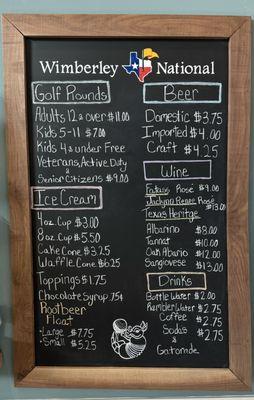 Wimberley National
Golf Rounds
Adults 12 & over $11.00
Kids 5-11 $7.00
Kids 4 & under Free
Veterans, Active Duty
& Senior Citizens $9.00
Ice Cream
4 oz. Cup $3.00
8 oz. Cup $5.50
Cake Cone $3.25
Waffle Cone $6.25
Toppings $1.75
Chocolate Syrup 75¢
Rootbeer
Float
-Large $7.75
-Small $5.25
Beer
Domestic $3.75
Imported $4.00
Craft $4.25
Wine
Rosé $9.00
Jacklynn Renee Rosé
$13.00
Texas Heritage
Albarino $8.00
Tannat $10.00
Oak Albarino $12.00
Sangiovese $13.00
Drinks
Bottle Water $2.00
Rambler Water $2.75
Coffee $2.75
Sodas $2.75
&
Gatorade